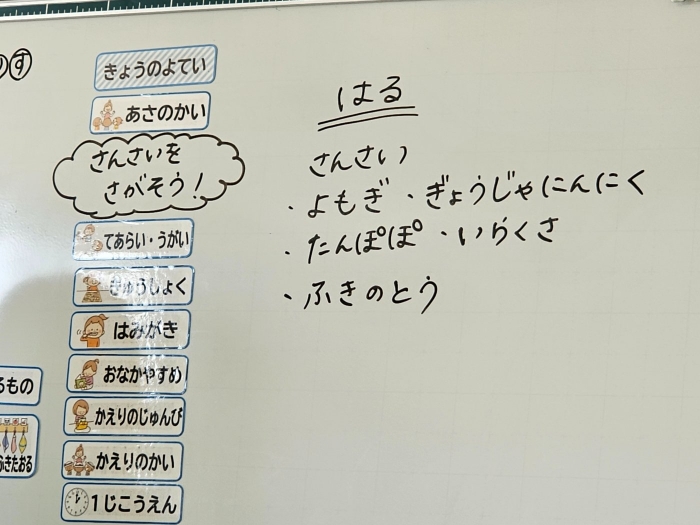 す
きょうのよてい
あさのかい
さんさいを
さがそう！
てあらい・うがい
きゅうしょく
はみがき
おなかやすめ
かえりのじゅんび
かえりのかい
1じこうえん
るもの
ふきたおる
はる
さんさい
・よもぎ ・ぎょうじゃにんにく
・たんぽぽ ・いらくさ
・ふきのとう